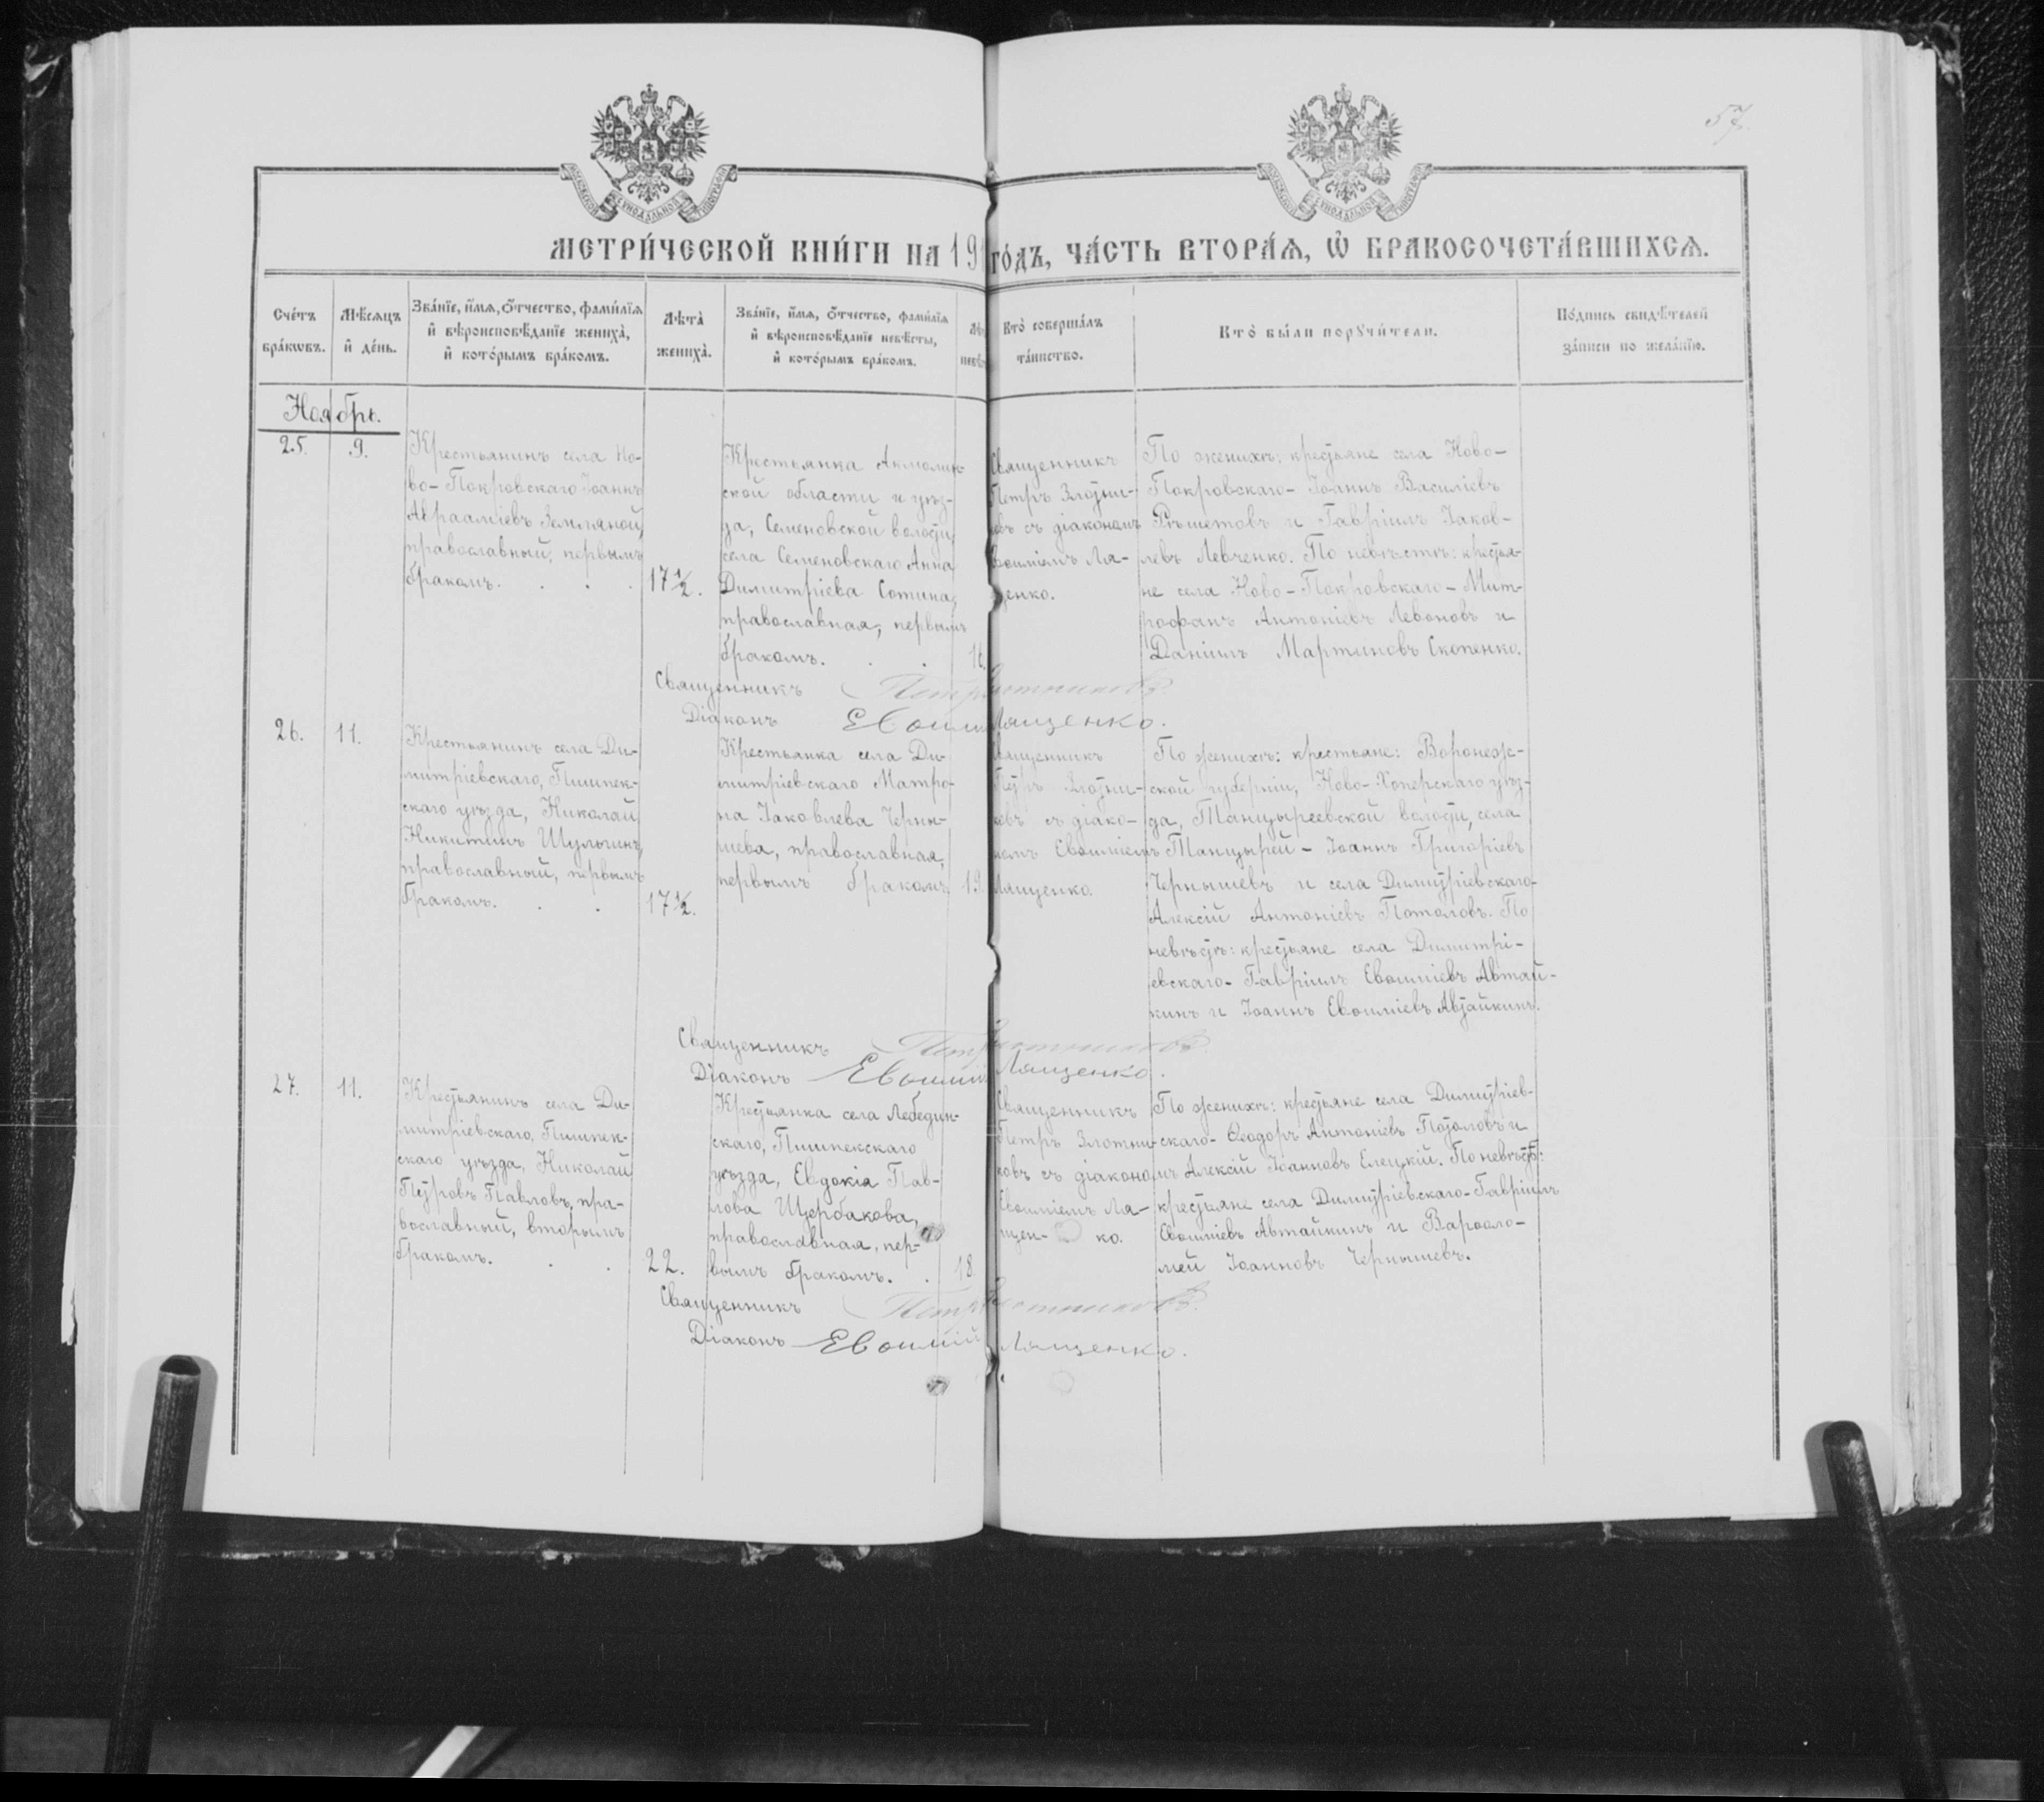 57.
МЕТРИ́ЧЕСКОЙ КНИ́ГИ НА 191 ГО́ДЪ, ЧА́СТЬ ВТОРА́Ѧ, Ѽ БРАКОСОЧЕТА́ВШИХСѦ.
Сче́тъ бра́кѡвъ.
Мѣ́сѧцъ и҆ де́нь.
Зва́нїе, и҆́мѧ, ѻ҆́тчество, фами́лїѧ и҆ вѣроисповѣ́данїе жениха̀, и҆ кото́рымъ бра́комъ.
Лѣта̀ жениха̀.
Зва́нїе, и҆́мѧ, ѻ҆́тчество, фами́лїѧ и҆ вѣроисповѣ́данїе невѣ́сты, и҆ кото́рымъ бра́комъ.
Кто̀ соверша́лъ та́инство.
Кто̀ бы́ли порꙋчи́тели.
По́дпись свидѣ́телей за́писи по жела́нїю.
Ноябрь.
25.
9.
Крестьянинъ села Но-
во-Покровскаго Іоаннъ
Авраамиевъ Земляной,
православный, первымъ
бракомъ. . . .
17 ½.
Крестьянка Акмолин-
ской области и уѣз-
да, Семеновской волости,
села Семеновскаго Анна
Димитріева Сотина,
православная, первымъ
бракомъ. . .
16.
Священникъ
Петръ Злотни-
ковъ съ діакономъ
Евѳиміемъ Ля-
щенко.
По женихѣ: крестьяне села Ново-
Покровскаго - Іоаннъ Василіевъ
Рѣшетовъ и Гавріилъ Іаков-
левъ Левченко. По невѣстѣ: крестья-
не села Ново-Покровскаго - Мит-
рофанъ Антоніевъ Левоновъ и
Даніилъ Мартиновъ Скопенко.
Священникъ Петръ Злотниковъ
Діаконъ Евѳимій Лященко.
26.
11.
Крестьянинъ села Ди-
митріевскаго, Пишпек-
скаго уѣзда, Николай
Никитинъ Шульгинъ,
православный, первымъ
бракомъ. . .
17 ½.
Крестьянка села Ди-
митріевскаго Матро-
на Іаковлева Черны-
шева, православная,
первымъ бракомъ
19.
Священникъ
Петръ Злотни-
ковъ съ діако-
номъ Евѳиміемъ
Лященко.
По женихѣ: крестьяне: Воронеж-
ской губерніи, Ново-Хоперскаго уѣз-
да, Танцыреевской волости, села
Танцырей - Іоаннъ Григоріевъ
Чернышевъ и села Димитріевскаго-
Алексій Антоніевъ Потоловъ. По
невѣстѣ: крестьяне села Димитрі-
евскаго - Гавріилъ Евѳиміевъ Автай-
кинъ и Іоаннъ Евѳиміевъ Автайкинъ.
Священникъ Петръ Злотниковъ
Діаконъ Евѳимій Лященко.
27.
11.
Крестьянинъ села Ди-
митріевскаго, Пишпек-
скаго уѣзда, Николай
Петровъ Павловъ, пра-
вославный, вторымъ
бракомъ. . .
22.
Крестьянка села Лебедин-
скаго, Пишпекскаго
уѣзда, Евдокія Пав-
лова Щербакова,
православная, пер-
вымъ бракомъ. .
18.
Священникъ
Петръ Злотни-
ковъ съ діакономъ
Евѳиміемъ Ля-
щен- ко.
По женихѣ: крестьяне села Димитріев-
скаго - Ѳеодоръ Антоніевъ Потоловъ и
Алексій Іоанновъ Елецкій. По невѣстѣ:
крестьяне села Димитріевскаго - Гавріилъ
Евѳиміевъ Автайкинъ и Варѳоло-
мей Іоанновъ Чернышевъ.
Священникъ Петръ Злотниковъ
Діаконъ Евѳимій Лященко.